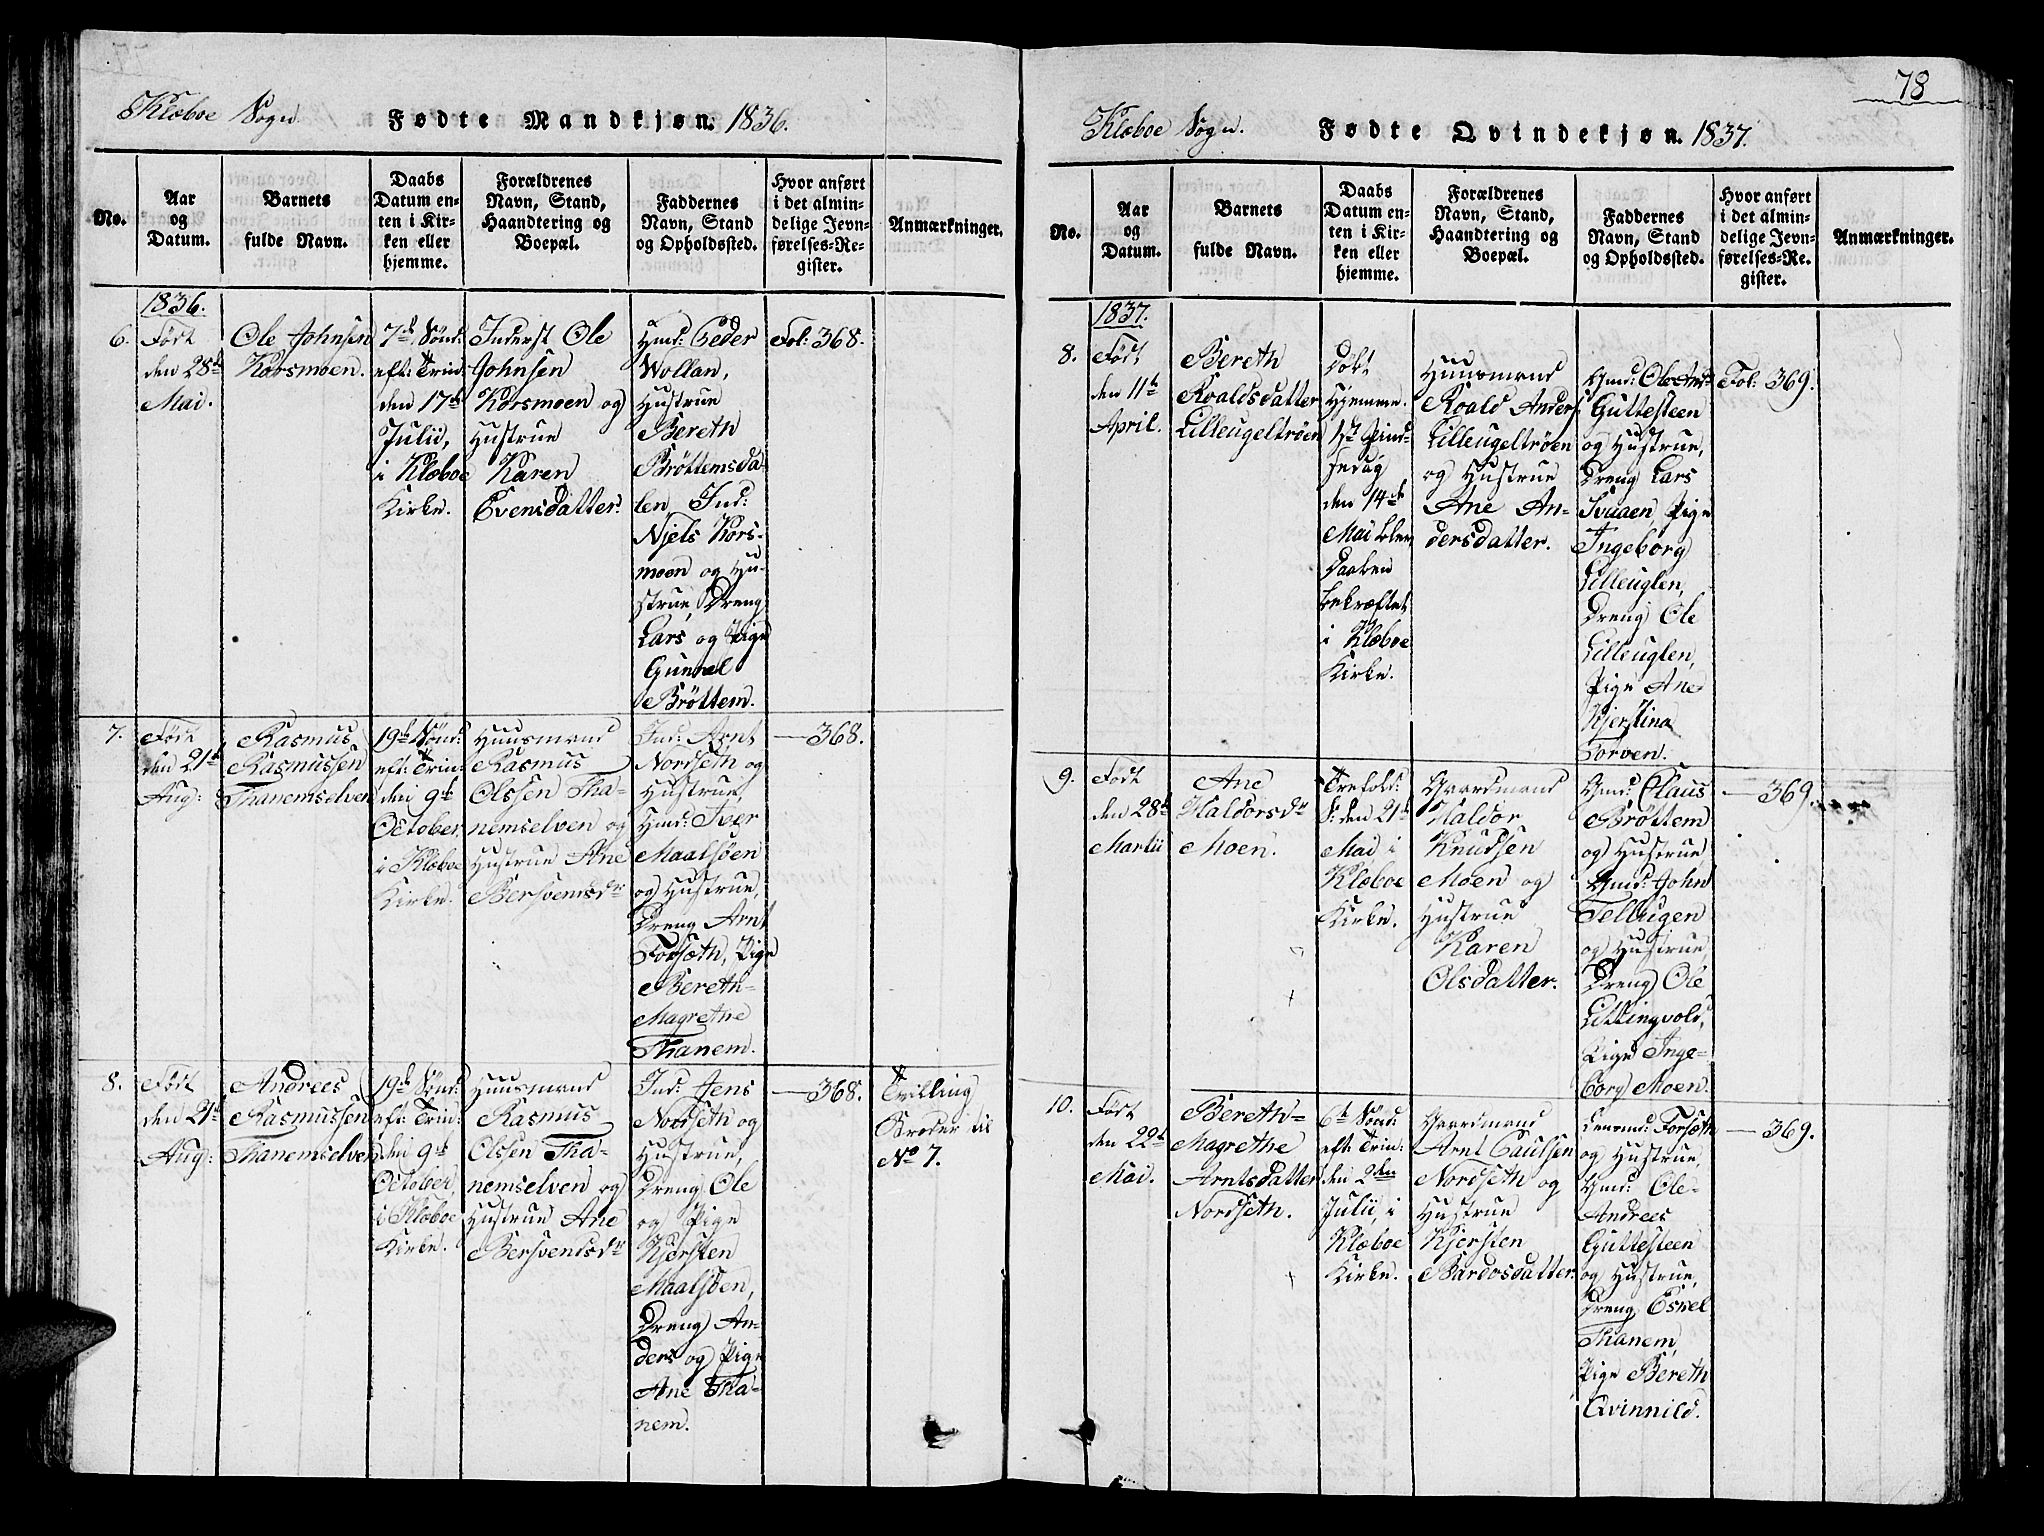 Klæboe Sogn.
Fødte Mandkjøn. 1836.
No.
Aar
og
Datum.
Barnets
fulde Navn.
Daabs
Datum en-
ten i Kir-
ken eller
hjemme.
Forældrenes
Navn, Stand,
Haandtering og
Boepæl.
Faddernes
Navn, Stand
og Opholdssted.
Hvor anført
i det almin-
delige Jevn-
førelses-Re-
gister.
Anmærkninger.
1836.
6.
Født
den 28de
Mai.
Ole Johnsen
Korsmoen.
7de Sønd:
eft: Trin:
den 17de
Julii,
i Klæboe
Kirke.
Inderst Ole
Johnsen
Korsmoen og
Hustrue
Karen
Evensdatter.
Gmd: Peder
Wollan,
Hustrue
Bereth
Brøttemsda-
len, Ind:
Njels Kors-
moen og Hu-
strue, Dreng
Lars og Pige
Gunnel
Brøttem.
Fol: 368.
7.
Født
den 21de
Aug:
Rasmus
Rasmussen
Thanemselven
19de Sønd:
eft: Trin:
den 9de
October,
i Klæboe
Kirke.
Huusmand
Rasmus
Olssen Tha-
nemselven og
Hustrue Ane
Bersvendsdr
Ind: Arnt
Nordseth og
Hustrue,
Hmd: Iver
Maalsøen
og Hustrue,
Dreng Arnt
Forseth, Pige
Bereth-
Magrethe
Thanem.
—368.
8.
Født
den 21de
Aug:
Andrees
Rasmussen
Thanemselven
19de Sønd:
eft: Trin:
den 9de
October,
i Klæboe
Kirke.
Huusmand
Rasmus
Olssen Tha-
nemselven og
Hustrue Ane
Bersvendsdr
Ind: Jens
Nordseth og
Hustrue,
Dreng Ole
og Pige
Kjersten
Maalsøen,
Dreng An-
ders og Pige
Ane Tha-
nem.
—368.
Tvilling
Broder til
No 7.
78
Klæboe Sogn.
Fødte Qvindekjøn. 1837.
No.
Aar
og
Datum.
Barnets
fulde Navn.
Daabs
Datum en-
ten i Kir-
ken eller
hjemme.
Forældrenes
Navn, Stand,
Haandtering og
Boepæl.
Faddernes
Navn, Stand
og Opholdssted.
Hvor anført
i det almin-
delige Jevn-
førelses-Re-
gister.
Anmærkninger.
1837.
8.
Født
den 11te
April.
Bereth
Roaldsdatter
Lilleugeltrøen
Døbt
Hjemme.
1ste Pind-
sedag
den 14de
Mai blev
Daaben
bekræftet
i Klæboe
Kirke.
Huusmand
Roald Anders:
Lilleugeltrøen
og Hustrue
Ane An-
dersdatter.
Gmd: Ole And:
Guttesteen
og Hustrue,
Dreng Lars
Svaaen, Pige
Ingeborg
Lilleuglen,
Dreng Ole
Lilleuglen,
Pige Ane
Kjerstina
Torven.
Fol: 369.
9.
Født
den 28de
Martii
Ane
Haldorsdr
Moen.
Trefold:
S: den 21de
Mai i
Klæboe
Kirke.
Gaardmand
Haldor
Knudsen
Moen og
Hustrue
Karen
Olsdatter.
Gmd: Claus
Brøttem
og Hustrue
Gmd: John
Tellugen
og Hustrue,
Dreng Ole
Littingvold,
Pige Inge-
borg Moen.
—369.
10.
Født
den 22de
Mai.
Bereth-
Magrethe
Arntsdatter
Nordseth.
6te Sønd:
eft: Trin:
den 2den
Julii, i
Klæboe
Kirke.
Gaardmand
Arnt Paulsen
Nordseth og
Hustrue
Kjersten
Bardosdatter.
Lensmd: Forseth
og Hustrue,
Gmd: Ole-
Andrees
Guttesteen
og Hustrue,
Dreng Eskel
Thanem,
Pige Bereth
Qvinnild.
—369.